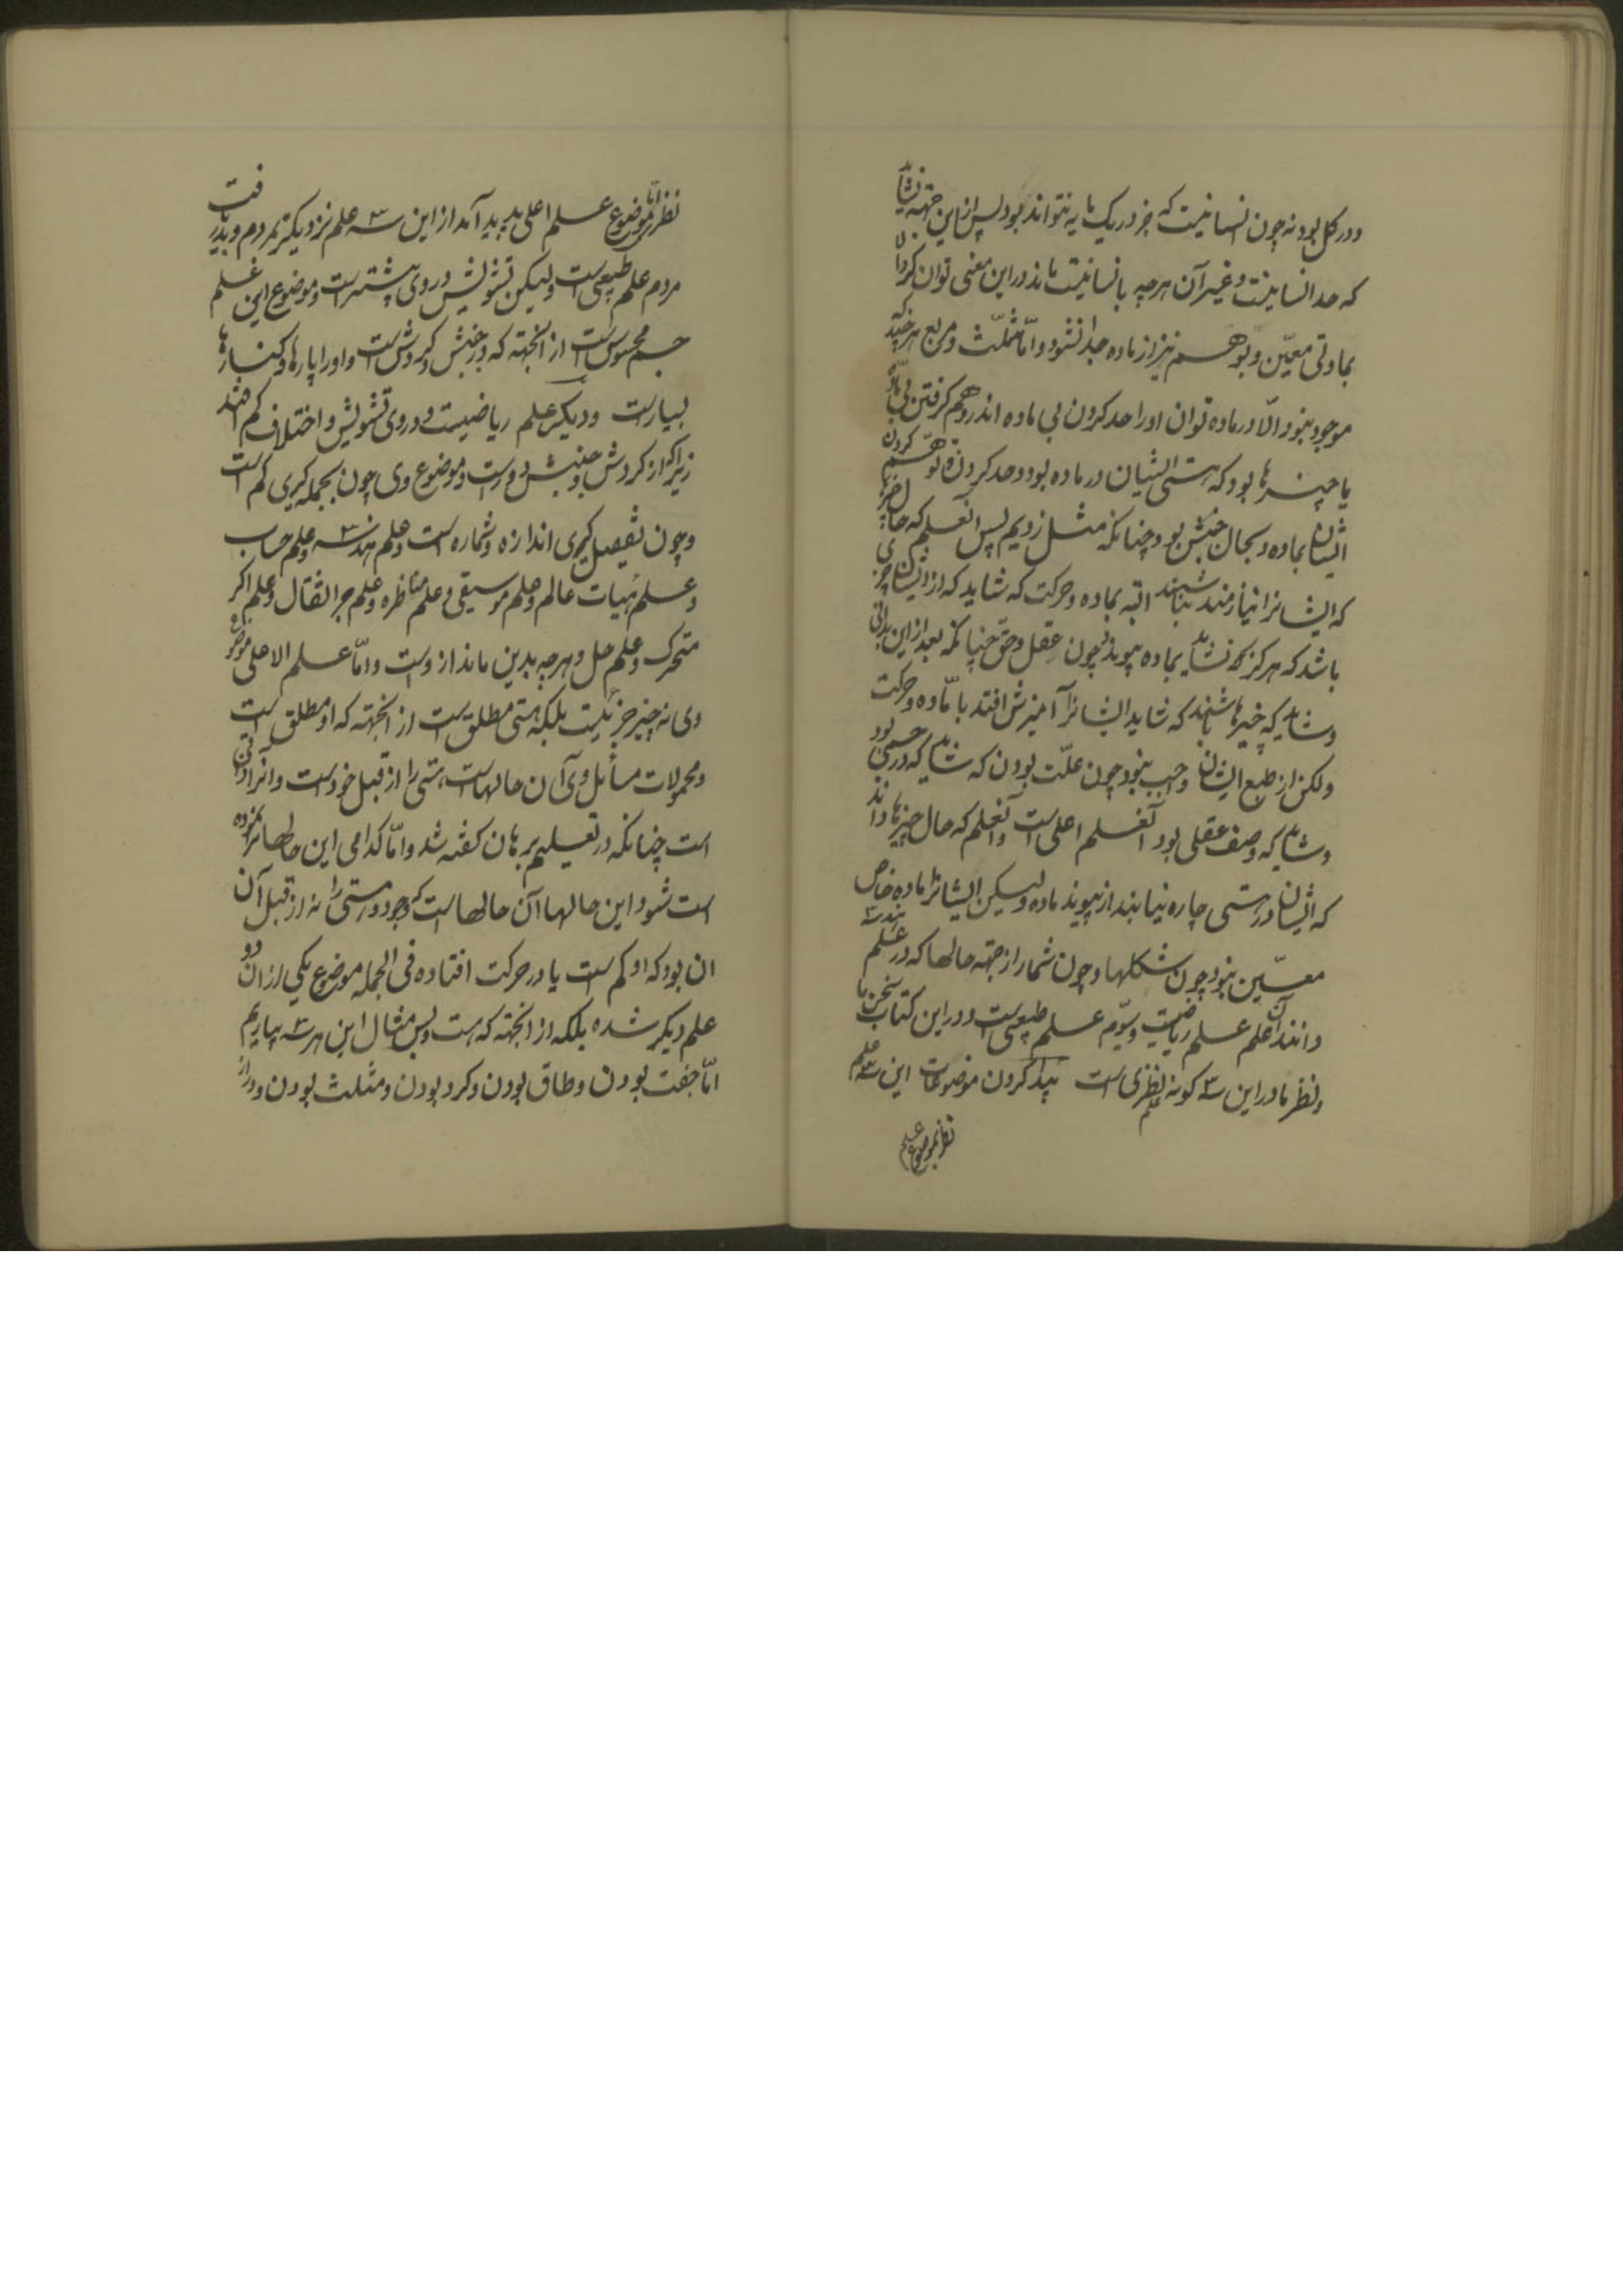 ودر کل بود نه چون انسانیت که جز در یک مایه نتواند بود پس از این جهته نشاید
که حد انسانیت و غیر آن هرچه بانسانیت ماند در این معنی توان کرد الا
بمادتی معیّن و بوهم نیز از ماده جدا نشود و امّا مثلّث و مربع هر چند که
موجود نبود الّا در ماده توان او را حد کردن بی ماده اندر وهم گرفتن بی مادّه
یا چیزها بود که هستی ایشان در ماده بود و حد کردن و توهّم کردن
ایشان بماده و بحال جنبش بود چنانکه مثل زدیم پس انعلم که حال چیزهای
که ایشانرا نیازمند نباشند البته بماده و حرکت که شاید که از ایشان چیزی
باشد که هرگز نشاید بماده پیوندد چون عقل و حقّ چنانکه بعد از این بدانی
و شاید که چیزها باشند که شاید ایشانرا آمیزش افتد با مادّه و حرکت
ولکن از طبع ایشان واجب نبود چون علّت بودن که شاید که در جسمی بود
و شاید که وصف عقلی بود آنعلم اعلی است و آنعلم که حال چیزها داند
که ایشان در هستی چاره نیابند از پیوند ماده ولیکن ایشانرا ماده خاص
معیّن نبود چون شکلها و چون شمار از جهته حالها که در علم هندسه
دانند آن علم علم ریاضیست و سیّم علم طبیعی است و در این کتاب سخن ما
و نظر ما در این سه گونه علم نظری است پیدا کردن موضوعات این سه علم
نظر بموضوع علم
نظر بموضوع علم اعلی پدید آید از این سه علم نزدیکتر بمردم و بدریافت
مردم علم طبیعی است ولیکن تشویش در وی بیشتر است و موضوع این علم
جسم محسوس است از انجهته که در جنبش و گردش است و او را پارها و کنارهاء
بسیار است و دیگر علم ریاضیست و در وی تشویش و اختلاف کم افتد
زیراکه از گردش و جنبش دور است و موضوع وی چون بجمله گیری کم است
و چون تفصیل گیری اندازه و شماره است و علم هندسه و علم حساب
و علم هیات عالم و علم موسیقی و علم مناظره و علم جر الثقال و علم اکر
متحرک و علم حل و هرچه بدین ماند از وست و امّا علم الاعلی موضوع
وی نه چیز جزئیست بلکه هستی مطلق است از انجهته که او مطلق است
و محمولات مسایل وی آن حالهاست که هستی را از قبل خود است و انرا ذاتی
است چنانکه در تعلیم برهان گفته شد و امّا کدامی این حالها نموده
است شود این حالها آن حالها است که وجود و هستی را نه از قبل آن
ان بود که او کم است یا در حرکت افتاده فی الجمله موضوع یکی از ان دو
علم دیگر شده بلکه از انجهته که هست و بس مثال این هر سه بیاریم
امّا جفت بودن و طاق بودن و گرد بودن و مثلث بودن و دراز